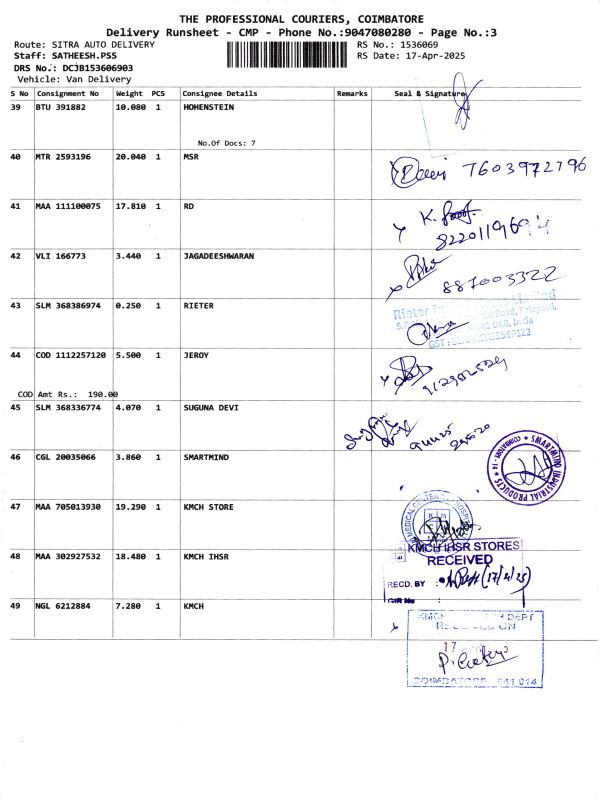 THE PROFESSIONAL COURIERS, COIMBATORE
Delivery Runsheet - CMP - Phone No.:9047080280 - Page No.:3
Route: SITRA AUTO DELIVERY RS No.: 1536069
Staff: SATHEESH.PSS RS Date: 17-Apr-2025
DRS No.: DCJB153606903
Vehicle: Van Delivery
S No Consignment No Weight PCS Consignee Details Remarks Seal & Signature
39 BTU 391882 10.080 1 HOHENSTEIN
No.Of Docs: 7
40 MTR 2593196 20.040 1 MSR
7603972796
41 MAA 111100075 17.810 1 RD
K.
42 VLI 166773 3.440 1 JAGADEESHWARAN
887003322
43 SLM 368386974 0.250 1 RIETER
Rieter Limited
Road,
India
44 COD 1112257120 5.500 1 JEROY
COD Amt Rs.: 190.00
45 SLM 368336774 4.070 1 SUGUNA DEVI
46 CGL 20035066 3.860 1 SMARTMIND
SMARTMIND INDUSTRIAL PRODUCTS ★ COIMBATORE - 14 ★
47 MAA 705013930 19.290 1 KMCH STORE
48 MAA 302927532 18.480 1 KMCH IHSR
KMCH IHSR STORES
RECEIVED
RECD. BY : (17/4/25)
GIR No
49 NGL 6212884 7.280 1 KMCH
KMCH DEPT
ON
17
COIMBATORE 641 014